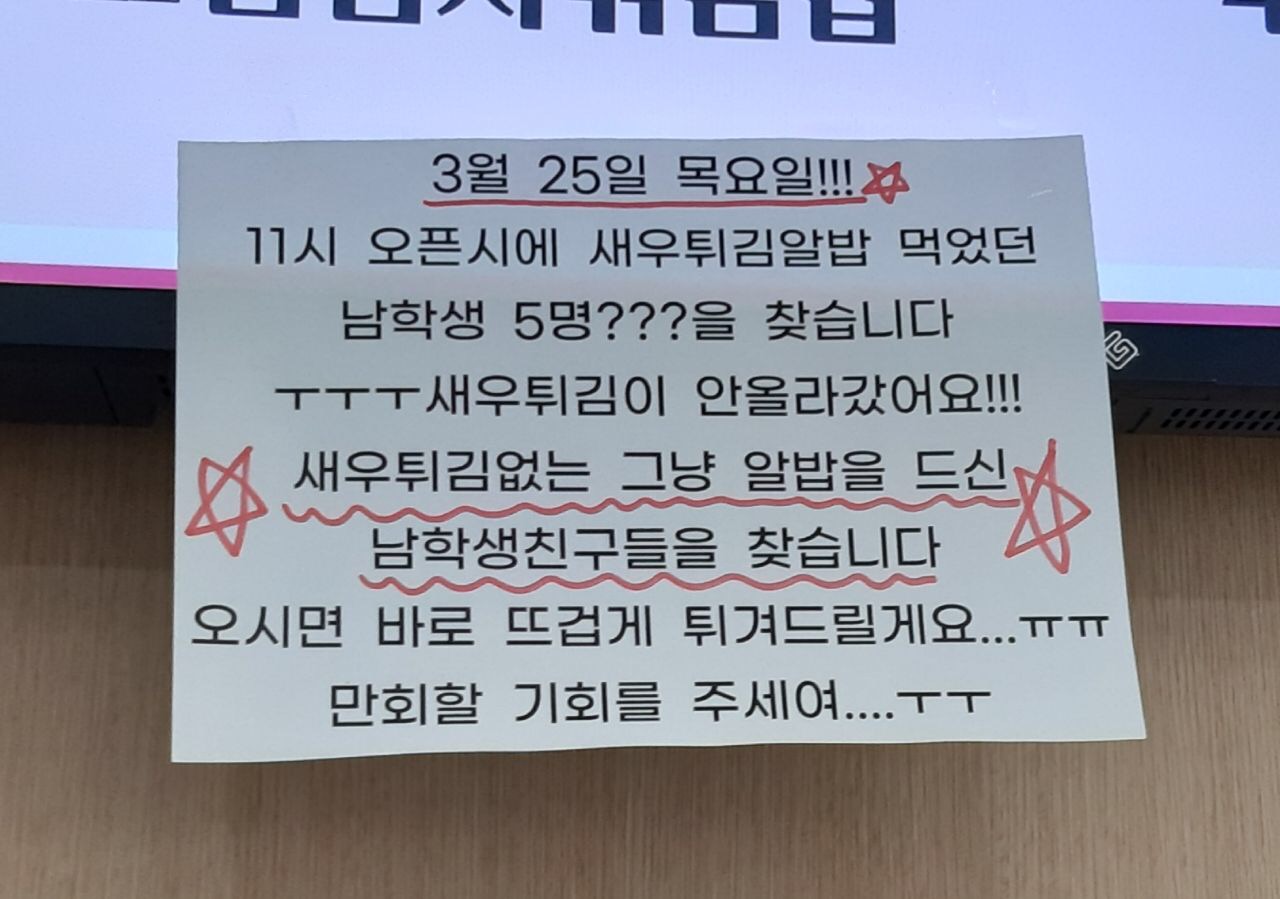 3월 25일 목요일!!!
11시 오픈시에 새우튀김알밥 먹었던
남학생 5명???을 찾습니다
ㅜㅜㅜ새우튀김이 안올라갔어요!!!
새우튀김없는 그냥 알밥을 드신
남학생친구들을 찾습니다
오시면 바로 뜨겁게 튀겨드릴게요...ㅠㅠ
만회할 기회를 주세여....ㅜㅜ